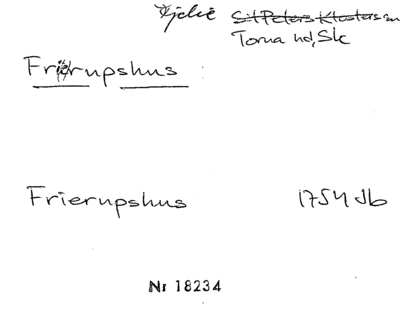 Fjelie S:t Peters Klosters sn
Torna hd, Sk
Frierupshus
Frierupshus 1754 Jb
Nr 18234